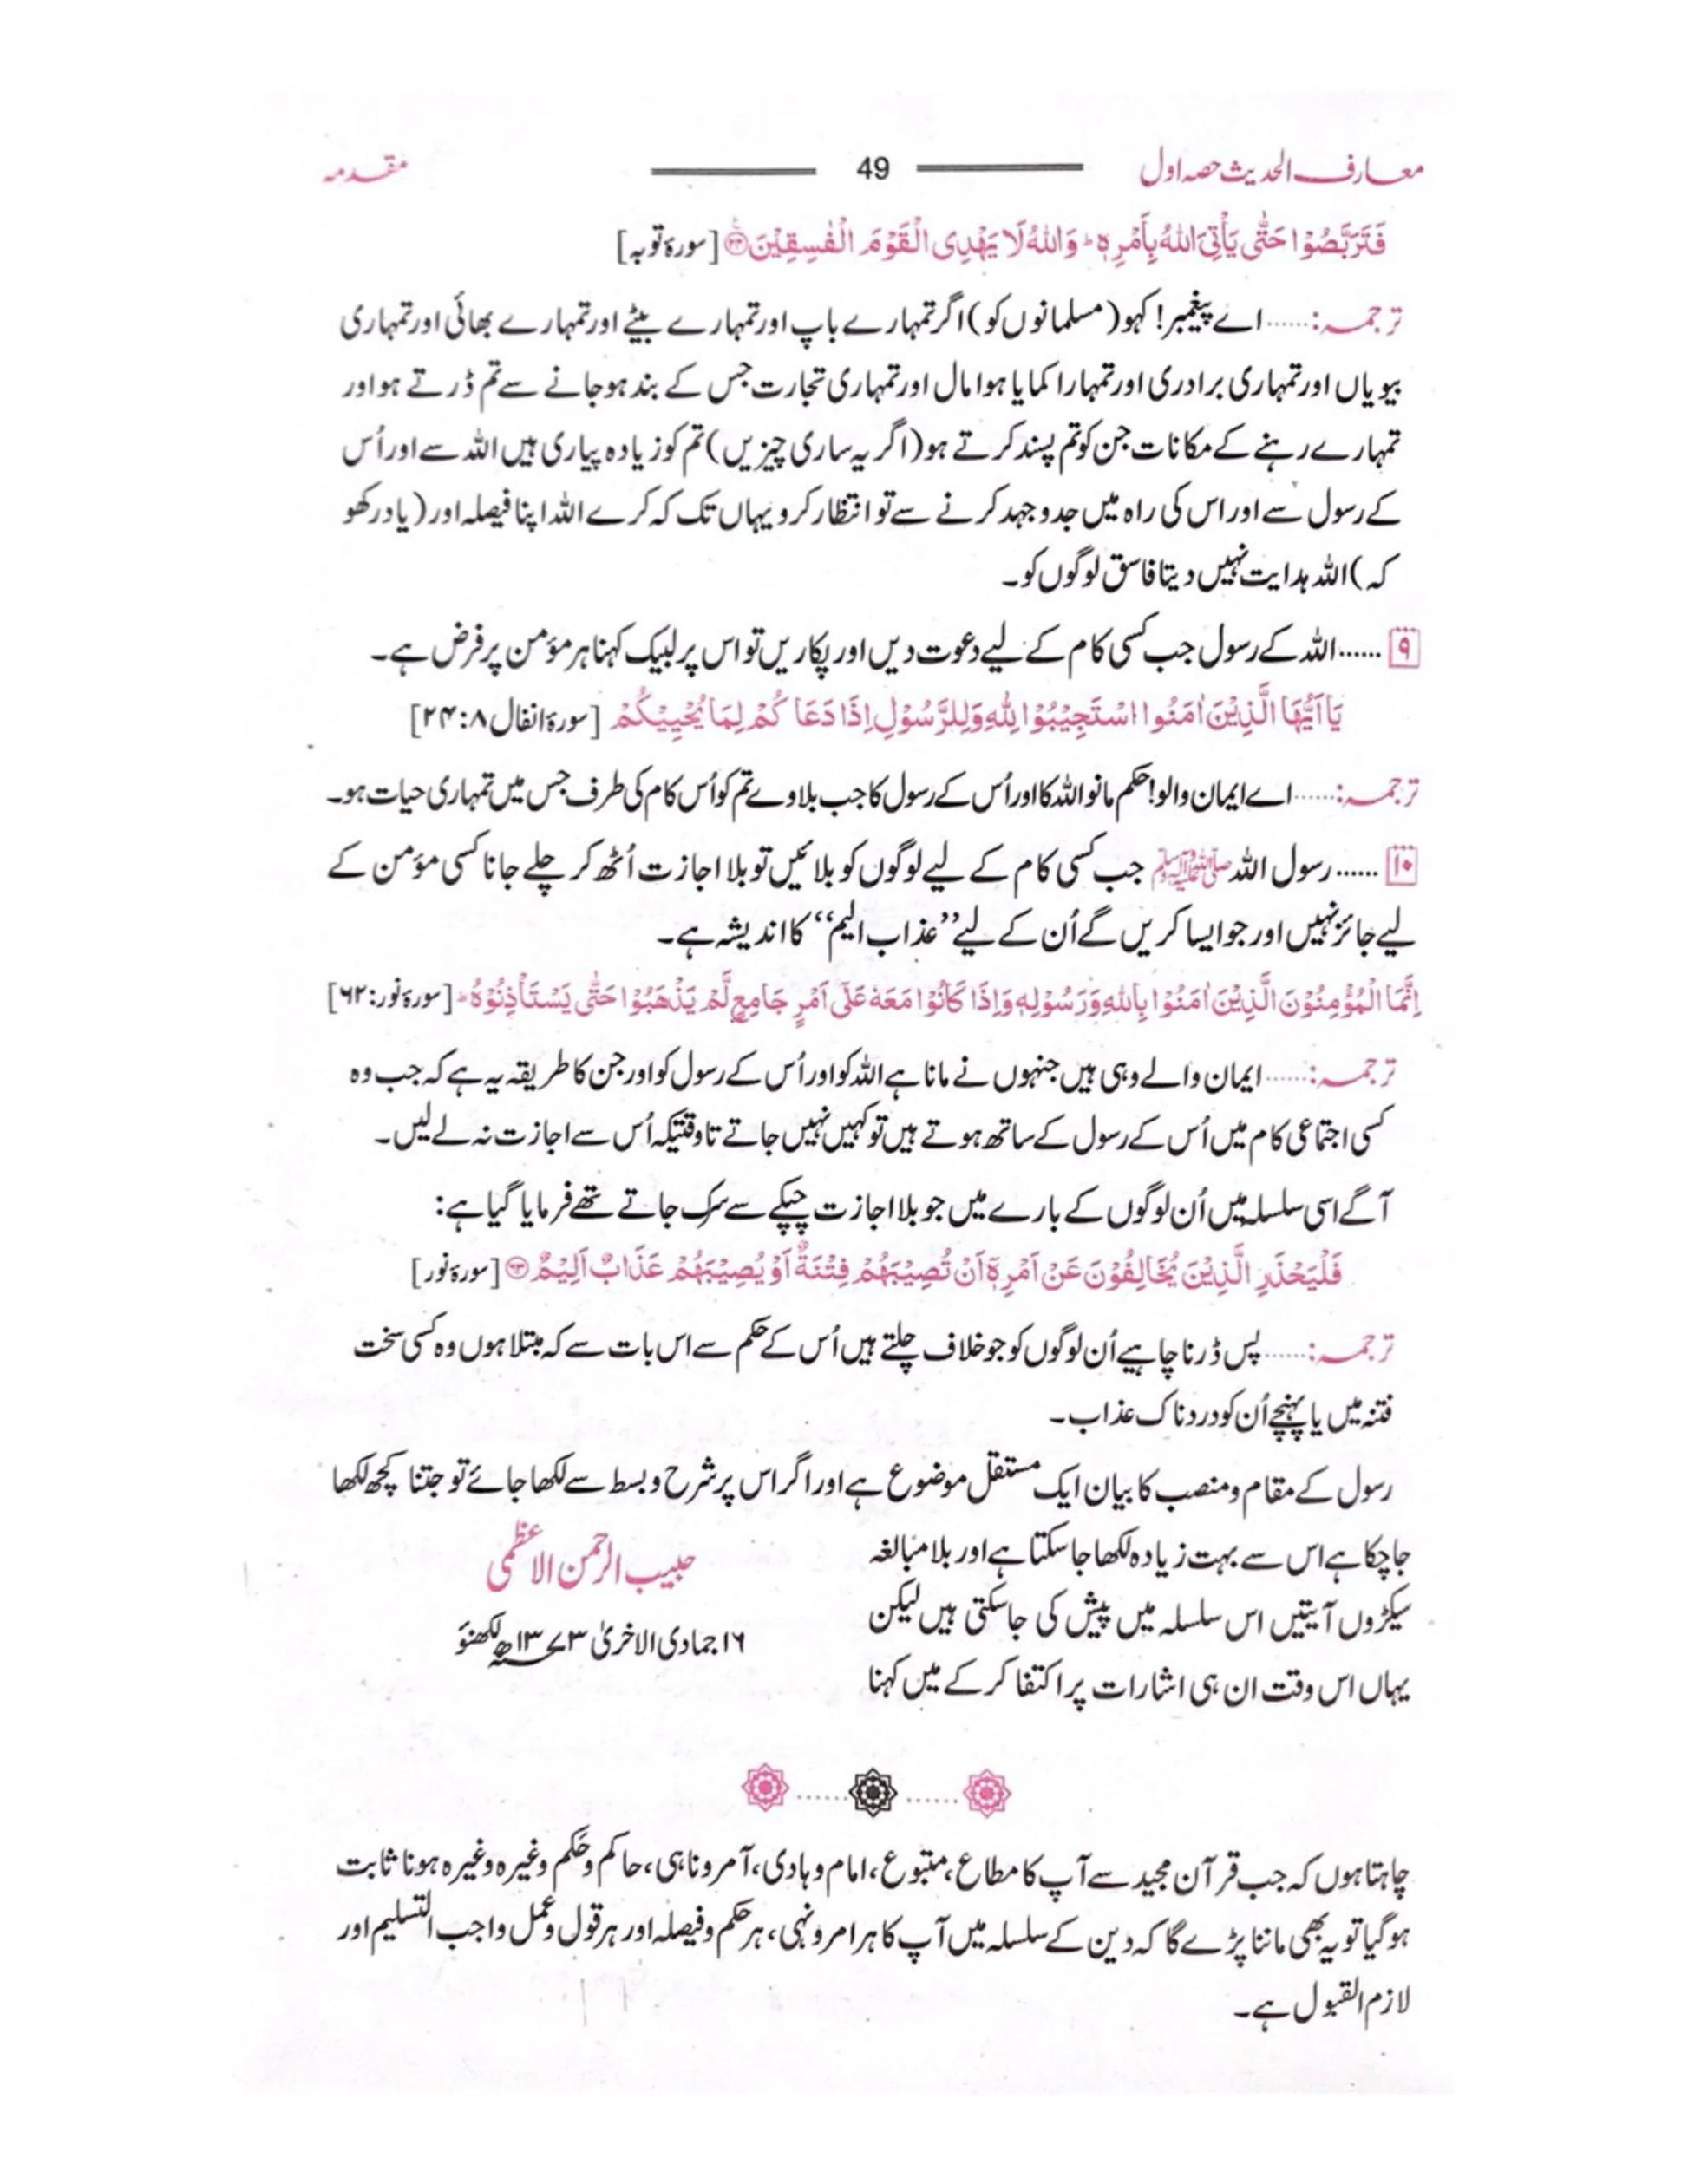 معارف الحدیث حصہ اول
49
مقدمہ
فَتَرَبَّصُوْا حَتّٰى يَأْتِيَ اللّٰهُ بِأَمْرِهٖ ؕ وَاللّٰهُ لَا يَهْدِي الْقَوْمَ الْفٰسِقِيْنَ ﴿۲۴﴾ [سورۃ توبہ]
ترجمہ:...... اے پیغمبر! کہو (مسلمانوں کو) اگر تمہارے باپ اور تمہارے بیٹے اور تمہارے بھائی اور تمہاری
بیویاں اور تمہاری برادری اور تمہارا کمایا ہوا مال اور تمہاری تجارت جس کے بند ہو جانے سے تم ڈرتے ہو اور
تمہارے رہنے کے مکانات جن کو تم پسند کرتے ہو (اگر یہ ساری چیزیں) تم کو زیادہ پیاری ہیں اللہ سے اور اُس
کے رسول سے اور اس کی راہ میں جدوجہد کرنے سے تو انتظار کرو یہاں تک کہ کرے اللہ اپنا فیصلہ اور (یاد رکھو
کہ) اللہ ہدایت نہیں دیتا فاسق لوگوں کو۔
۹ ...... اللہ کے رسول جب کسی کام کے لیے دعوت دیں اور پکاریں تو اس پر لبیک کہنا ہر مؤمن پر فرض ہے۔
يَا اَيُّهَا الَّذِيْنَ اٰمَنُوا اسْتَجِيْبُوْا لِلّٰهِ وَلِلرَّسُوْلِ اِذَا دَعَا كُمْ لِمَا يُحْيِيْكُمْ [سورۃ انفال ۸:۲۴]
ترجمہ:...... اے ایمان والو! حکم مانو اللہ کا اور اُس کے رسول کا جب بلاوے تم کو اُس کام کی طرف جس میں تمہاری حیات ہو۔
۱۰ ...... رسول اللہ ﷺ جب کسی کام کے لیے لوگوں کو بلائیں تو بلا اجازت اُٹھ کر چلے جانا کسی مؤمن کے
لیے جائز نہیں اور جو ایسا کریں گے اُن کے لیے ”عذاب الیم“ کا اندیشہ ہے۔
اِنَّمَا الْمُؤْمِنُوْنَ الَّذِيْنَ اٰمَنُوْا بِاللّٰهِ وَرَسُوْلِهٖ وَاِذَا كَانُوْا مَعَهٗ عَلٰى اَمْرٍ جَامِعٍ لَّمْ يَذْهَبُوْا حَتّٰى يَسْتَأْذِنُوْهُ ؕ [سورۃ نور:۶۲]
ترجمہ:...... ایمان والے وہی ہیں جنہوں نے مانا ہے اللہ کو اور اُس کے رسول کو اور جن کا طریقہ یہ ہے کہ جب وہ
کسی اجتماعی کام میں اُس کے رسول کے ساتھ ہوتے ہیں تو کہیں نہیں جاتے تاوقتیکہ اُس سے اجازت نہ لے لیں۔
آگے اسی سلسلہ میں اُن لوگوں کے بارے میں جو بلا اجازت چپکے سے سرک جاتے تھے فرمایا گیا ہے:
فَلْيَحْذَرِ الَّذِيْنَ يُخَالِفُوْنَ عَنْ اَمْرِهٖٓ اَنْ تُصِيْبَهُمْ فِتْنَةٌ اَوْ يُصِيْبَهُمْ عَذَابٌ اَلِيْمٌ ﴿۶۳﴾ [سورۃ نور]
ترجمہ:...... پس ڈرنا چاہیے اُن لوگوں کو جو خلاف چلتے ہیں اُس کے حکم سے اس بات سے کہ مبتلا ہوں وہ کسی سخت
فتنہ میں یا پہنچے اُن کو دردناک عذاب۔
رسول کے مقام و منصب کا بیان ایک مستقل موضوع ہے اور اگر اس پر شرح و بسط سے لکھا جائے تو جتنا کچھ لکھا
جاچکا ہے اس سے بہت زیادہ لکھا جاسکتا ہے اور بلا مبالغہ
سیکڑوں آیتیں اس سلسلہ میں پیش کی جاسکتی ہیں لیکن
یہاں اس وقت ان ہی اشارات پر اکتفا کرکے میں کہنا
حبیب الرحمن الاعظمی
۱۶ جمادی الاخریٰ ۱۳۷۳ھ لکھنؤ
چاہتا ہوں کہ جب قرآن مجید سے آپ کا مطاع، متبوع، امام و ہادی، آمر و ناہی، حاکم و حَکم وغیرہ وغیرہ ہونا ثابت
ہوگیا تو یہ بھی ماننا پڑے گا کہ دین کے سلسلہ میں آپ کا ہر امر و نہی، ہر حکم و فیصلہ اور ہر قول و عمل واجب التسلیم اور
لازم القبول ہے۔